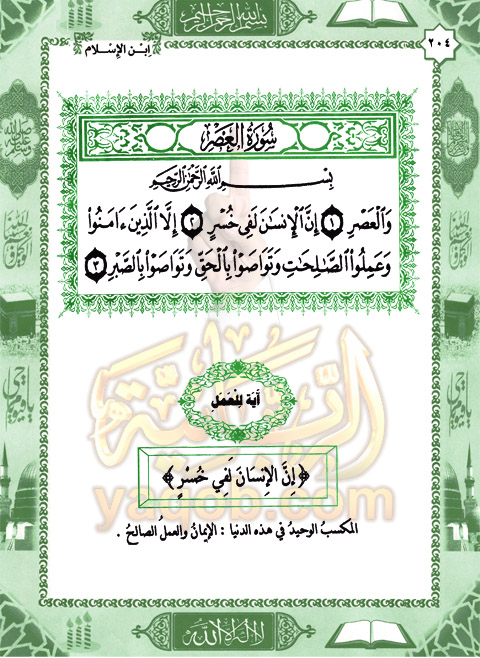 بسم الله الرحمن الرحيم
ابن الإسلام
٢٠٤
سُورَةُ الْعَصْرِ
بِسْمِ اللَّهِ الرَّحْمَٰنِ الرَّحِيمِ
وَالْعَصْرِ ١ إِنَّ الْإِنسَانَ لَفِي خُسْرٍ ٢ إِلَّا الَّذِينَ ءَامَنُوا
وَعَمِلُوا الصَّالِحَاتِ وَتَوَاصَوْا بِالْحَقِّ وَتَوَاصَوْا بِالصَّبْرِ ٣
آية للعمل
﴿ إِنَّ الْإِنسَانَ لَفِي خُسْرٍ ﴾
yaqob.com
المكسبُ الوحيدُ في هذه الدنيا : الإيمانُ والعملُ الصالحُ .
لا إله إلا الله